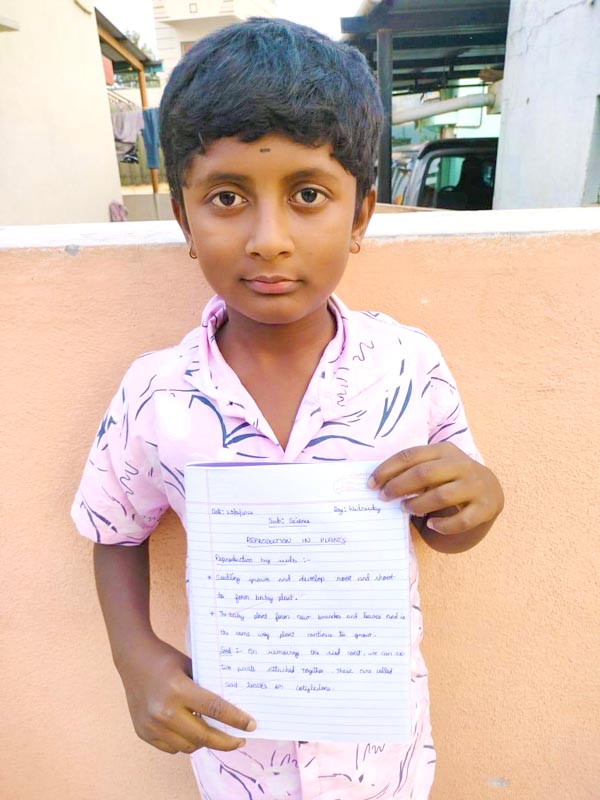 Day: Wednesday
Sub: Science
REPRODUCTION IN PLANTS
Reproduction by seeds :-
* Seedling grows and develop root and shoot
to form baby plant.
* The baby plant form new branches and leaves and in
the same way plant continue to grow.
Seed :- On removing the seed coat, we can see
two parts attached together. These are called
seed leaves or cotyledons.